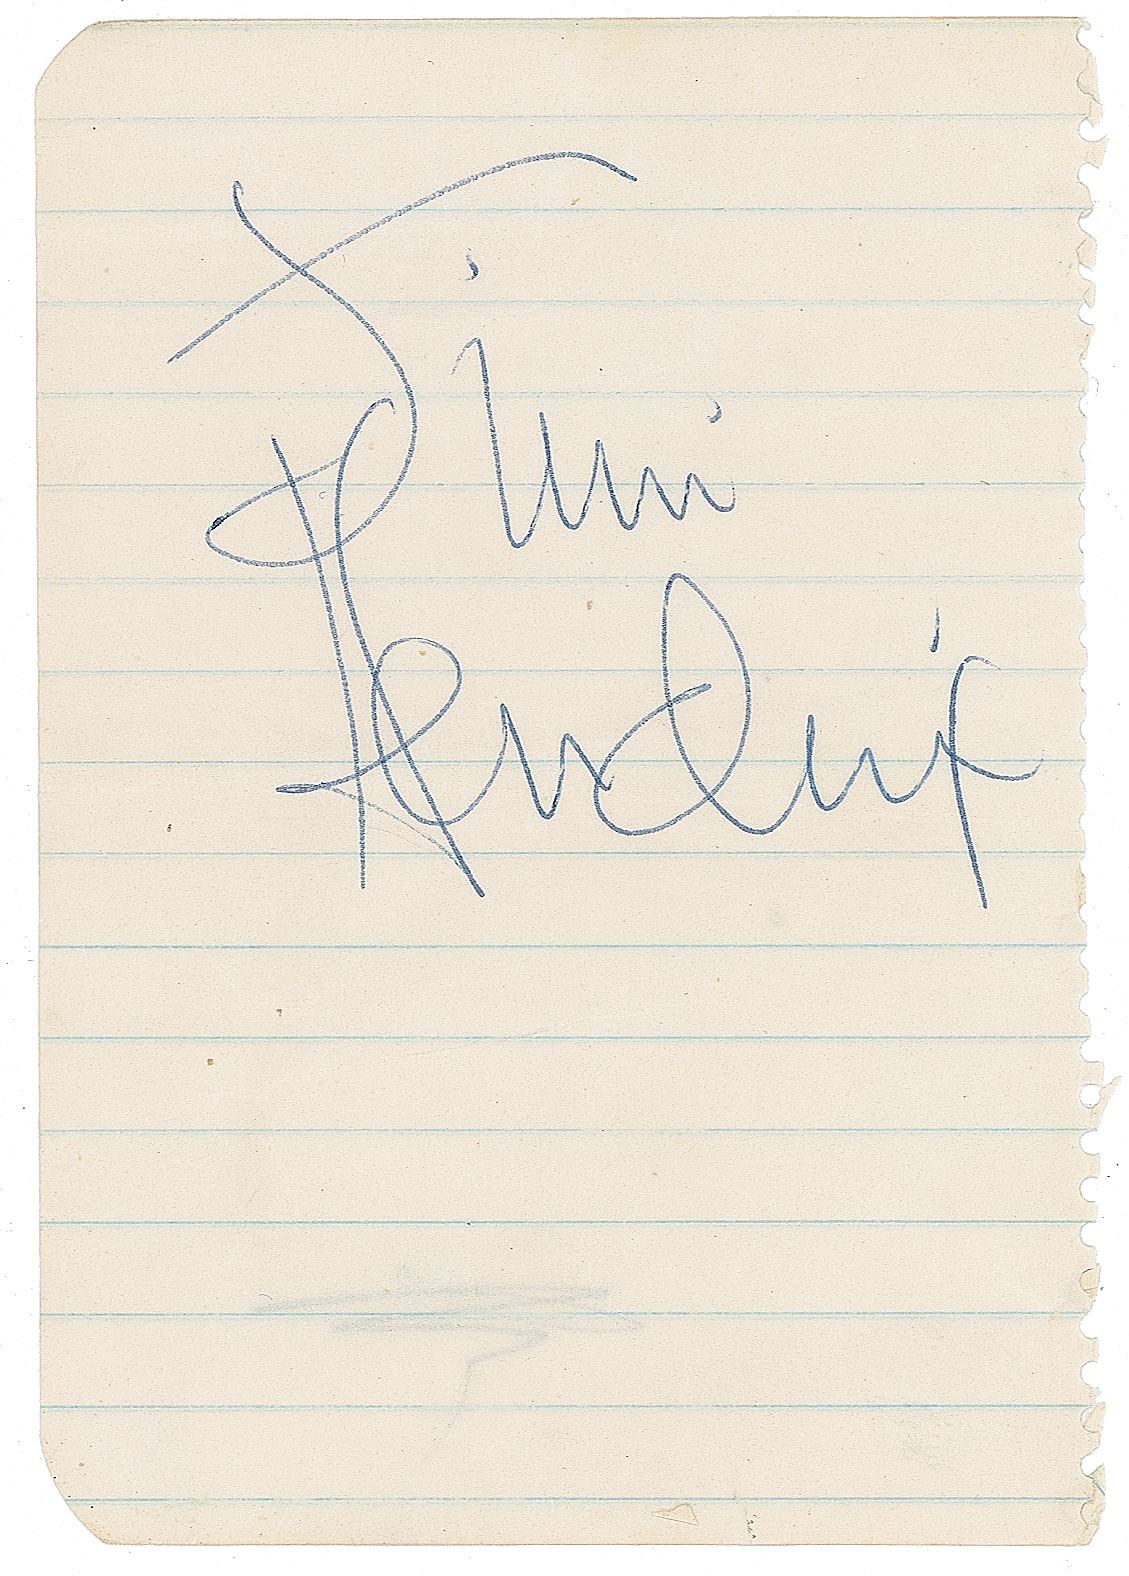 Jimi
Hendrix